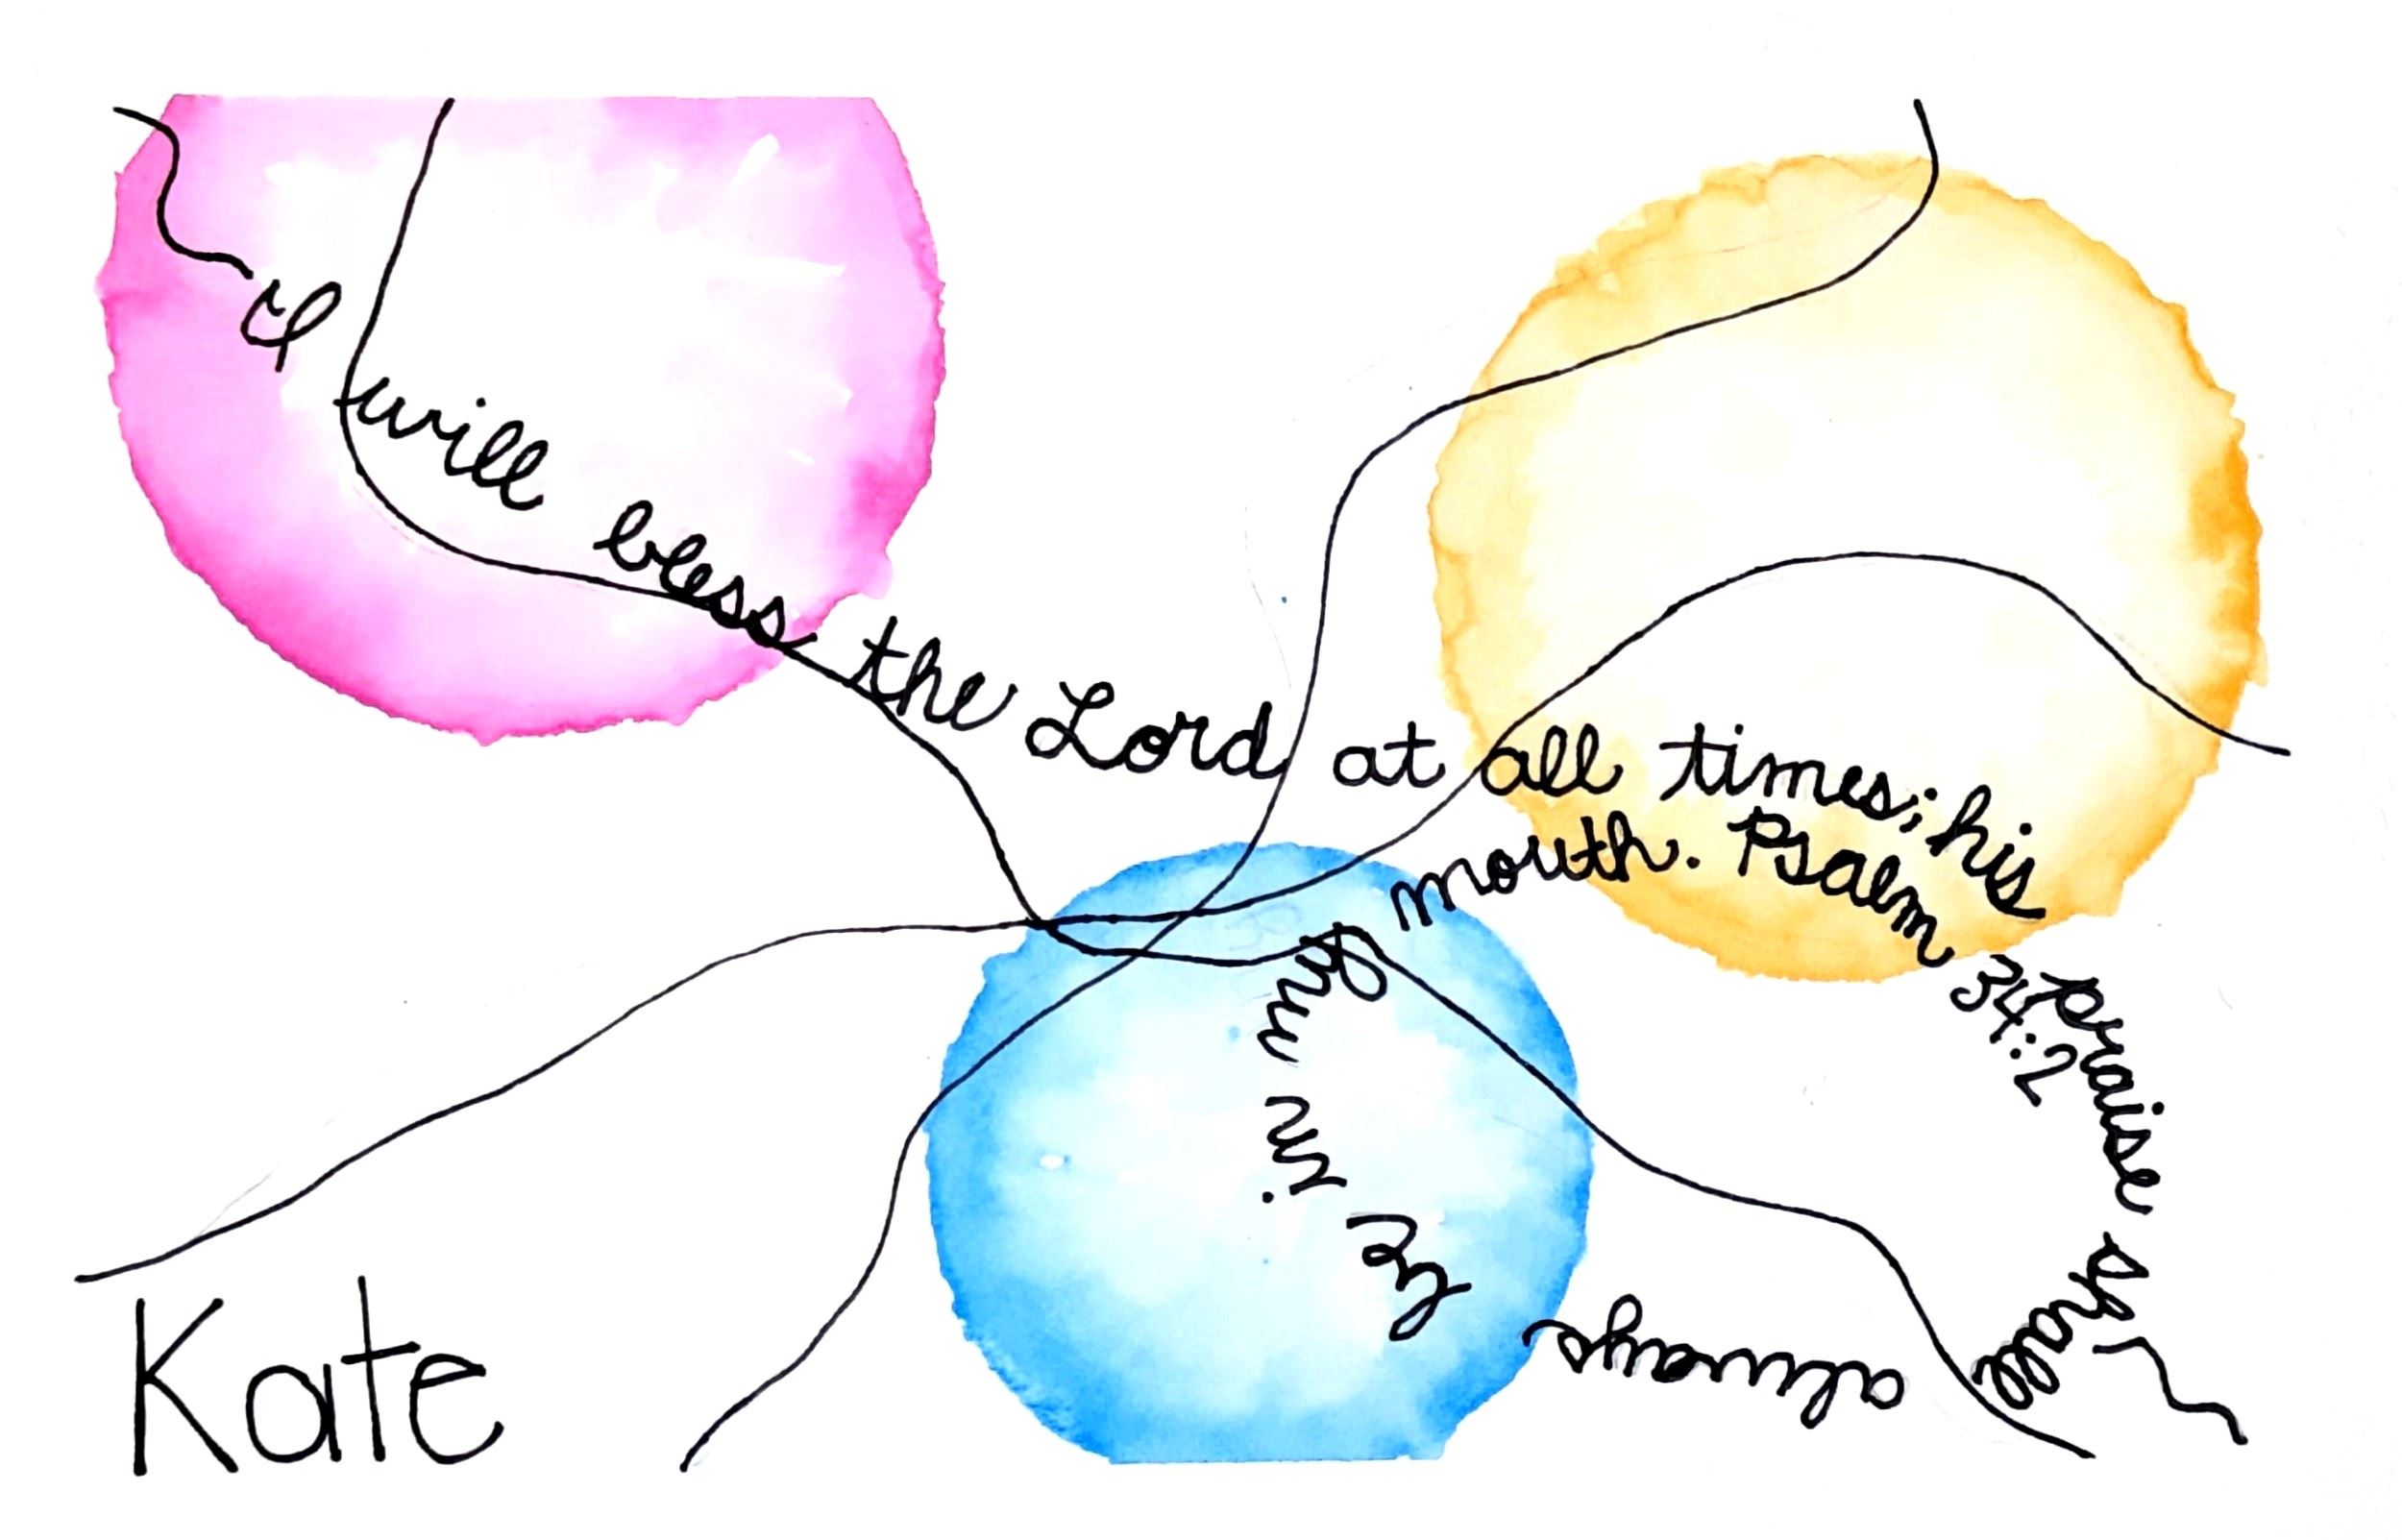 I will bless the Lord at all times; his praise shall always be in my mouth. Psalm 34:2
Kate